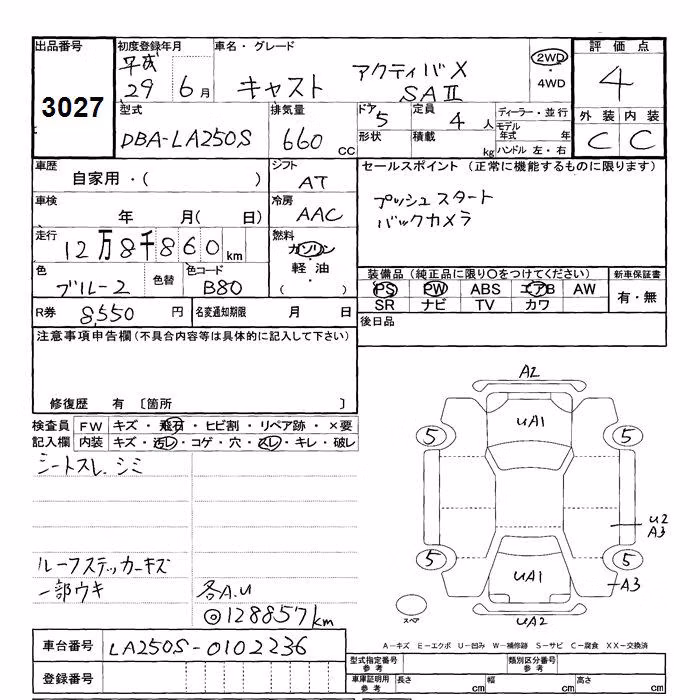 出品番号
3027
初度登録年月
平成
29 6月
車名・グレード
キャスト アクティバX
SAⅡ
2WD
・
4WD
評価点
4
外装 内装
C C
型式
DBA-LA250S
排気量
660 cc
ドア 5
形状
定員 4 人
積載 kg
ディーラー・並行
モデル年式 年
ハンドル 左・右
車歴
自家用・( )
シフト
AT
車検
年 月( 日)
冷房
AAC
走行
12万8千860km
燃料
ガソリン
・
軽油
・
( )
色
ブルー2
色替
色コード
B80
R券 8,550 円
名変通知期限 月 日
セールスポイント (正常に機能するものに限ります)
プッシュスタート
バックカメラ
装備品(純正品に限り○をつけてください)
新車保証書
PS PW ABS エアB AW
SR ナビ TV カワ
有・無
後日品
注意事項申告欄(不具合内容等は具体的に記入して下さい)
修復歴 有 〔箇所 〕
検査員記入欄
FW キズ・飛石・ヒビ割・リペア跡・×要
内装 キズ・汚レ・コゲ・穴・スレ・キレ・破レ
シートスレ、シミ
ルーフステッカーキズ
一部ウキ
各A.U
◎128857km
A2
UA1
5 5
U2
A3
5 5
A3
UA1
UA2
スペア
A-キズ E-エクボ U-凹み W-補修跡 S-サビ C-腐食 XX-交換済
車台番号 LA250S-0102236
登録番号
型式指定番号
参考
類別区分番号
参考
車庫証明用
参考
長さ cm 幅 cm 高さ cm